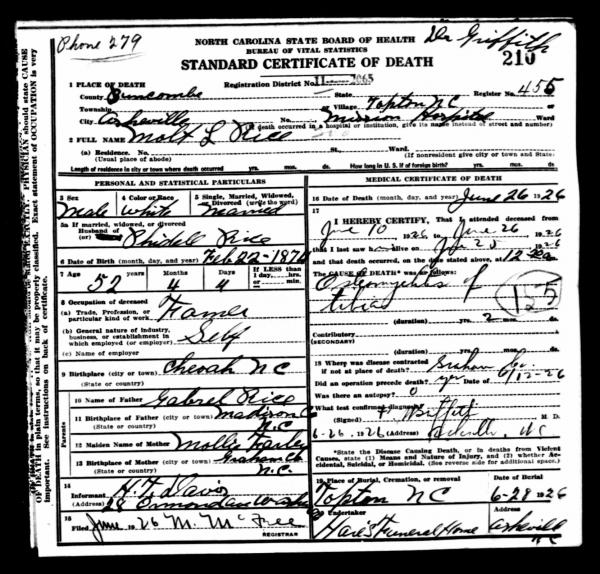 Phone 279
NORTH CAROLINA STATE BOARD OF HEALTH
BUREAU OF VITAL STATISTICS
STANDARD CERTIFICATE OF DEATH
Dr Griffith
210
1 PLACE OF DEATH
Registration District No.
County Buncombe State Register No. 455
Township or Village Topton NC
City Asheville No. Mission Hospital Ward
(If death occurred in a hospital or institution, give its name instead of street and number)
2 FULL NAME Molt L Rice
(a) Residence. No.
(Usual place of abode)
(If nonresident give city or town and State)
Length of residence in city or town where death occurred yrs. mos. ds. How long in U. S. if of foreign birth?
PERSONAL AND STATISTICAL PARTICULARS
3 Sex 4 Color or Race 5 Single, Married, Widowed, Divorced (write the word)
Male White Married
5a If married, widowed, or divorced
Husband of
(or) Rice
6 Date of Birth (month, day, and year) Feb 22-187
7 Age years Months Days If LESS than 1 day, hrs. or min.
52 4 4
8 Occupation of deceased
(a) Trade, Profession, or particular kind of work Farmer
(b) General nature of Industry, business, or establishment in which employed (or employer) Self
(c) Name of employer
9 Birthplace (city or town) Cheoah NC
(State or country)
Parents
10 Name of Father Gabriel Rice
11 Birthplace of Father (city or town) Madison Co
(State or country) N.C.
12 Maiden Name of Mother Mollie
13 Birthplace of Mother (city or town) Graham Co
(State or country) N.C.
14
Informant Davis
(Address) 28 Ormond
15
Filed June 1926 M. McFee
REGISTRAR
MEDICAL CERTIFICATE OF DEATH
16 Date of Death (month, day, and year) June 26 1926
17
I HEREBY CERTIFY, That I attended deceased from
June 10 1926 to June 26 1926
that I last saw h alive on 1926
and that death occurred, on the date stated above, at 12
The CAUSE OF DEATH* was as follows:
Osteomyelitis of
tibia
155
(duration) yrs. 2 mos. ds.
Contributory
(SECONDARY)
(duration) yrs. mos. ds.
18 Where was disease contracted
if not at place of death? Graham Co.
Did an operation precede death? yes Date of 6/12-26
Was there an autopsy? 0
What test confirmed diagnosis?
(Signed) Griffith M. D.
6-26, 1926 (Address) Asheville, NC
*State the Disease Causing Death, or in deaths from Violent Causes, state (1) Means and Nature of Injury, and (2) whether Accidental, Suicidal, or Homicidal. (See reverse side for additional space.)
19 Place of Burial, Cremation, or removal Date of Burial
Topton NC 6-28 1926
20 Undertaker Address
Hare's Funeral Home Asheville NC